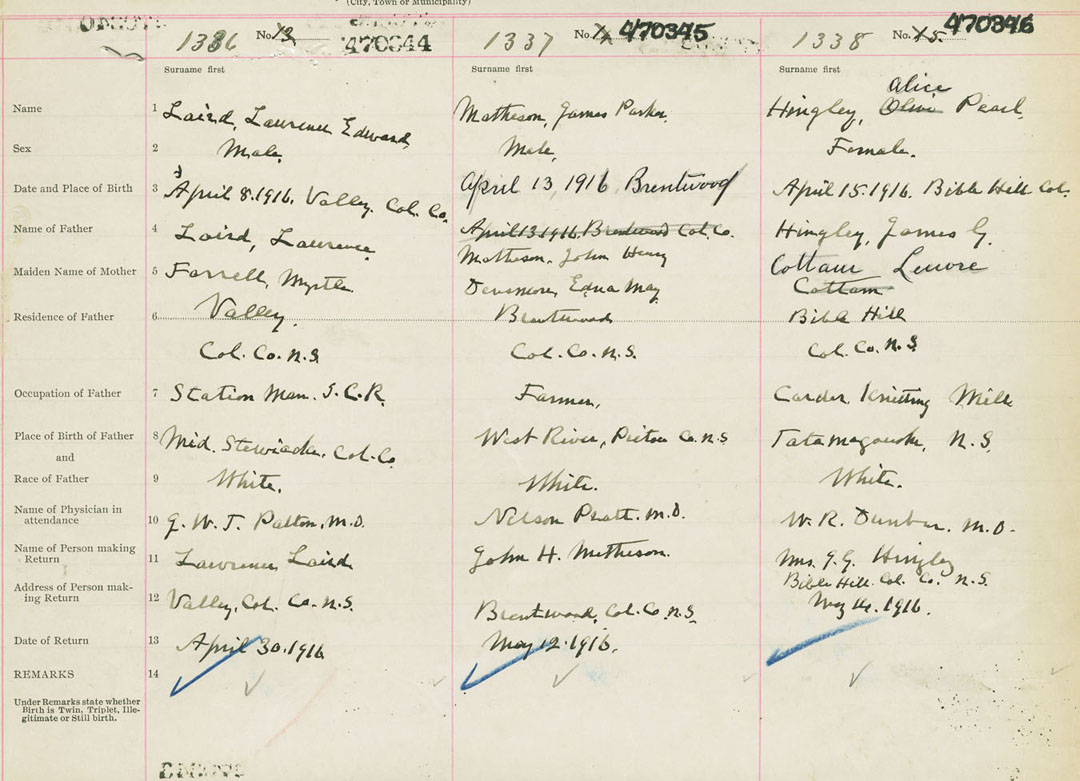 (City, Town or Municipality)
1336 No. 470344 1337 No. 470345 1338 No. 470346
Surname first Surname first Surname first
Alice
Name 1 Laird, Lawrence Edward Matheson, James Parker. Hingley, Olive Pearl
Sex 2 Male. Male. Female.
Date and Place of Birth 3 April 8. 1916. Valley. Col. Co. April 13, 1916 Brentwood April 15. 1916. Bible Hill Col.
April 13. 1916. Brentwood Col. Co.
Name of Father 4 Laird, Lawrence Matheson, John Henry Hingley, James G.
Maiden Name of Mother 5 Farrell, Myrtle Densmore, Edna May Cottam Lenore
Cottam
Residence of Father 6 Valley. Brentwood Bible Hill
Col. Co. N.S. Col. Co. N.S. Col. Co. N.S.
Occupation of Father 7 Station Man. I.C.R. Farmer. Carder. Knitting Mill
Place of Birth of Father 8 Mid. Stewiacke, Col. Co. West River, Pictou Co. N.S Tatamagouche, N.S.
and
Race of Father 9 White. White. White.
Name of Physician in
attendance 10 Patton, M.D. Nelson Pratt. M.D. W. R. Dunbar. M.D.
Name of Person making
Return 11 Lawrence Laird John H. Matheson. Mrs. J. G. Hingley
Address of Person mak-
ing Return 12 Valley, Col. Co. N.S. Brentwood, Col. Co. N.S. Bible Hill. Col. Co. N.S.
Date of Return 13 April 30. 1916 May 12. 1916. May 14. 1916.
REMARKS 14
Under Remarks state whether
Birth is Twin, Triplet, Ille-
gitimate or Still birth.